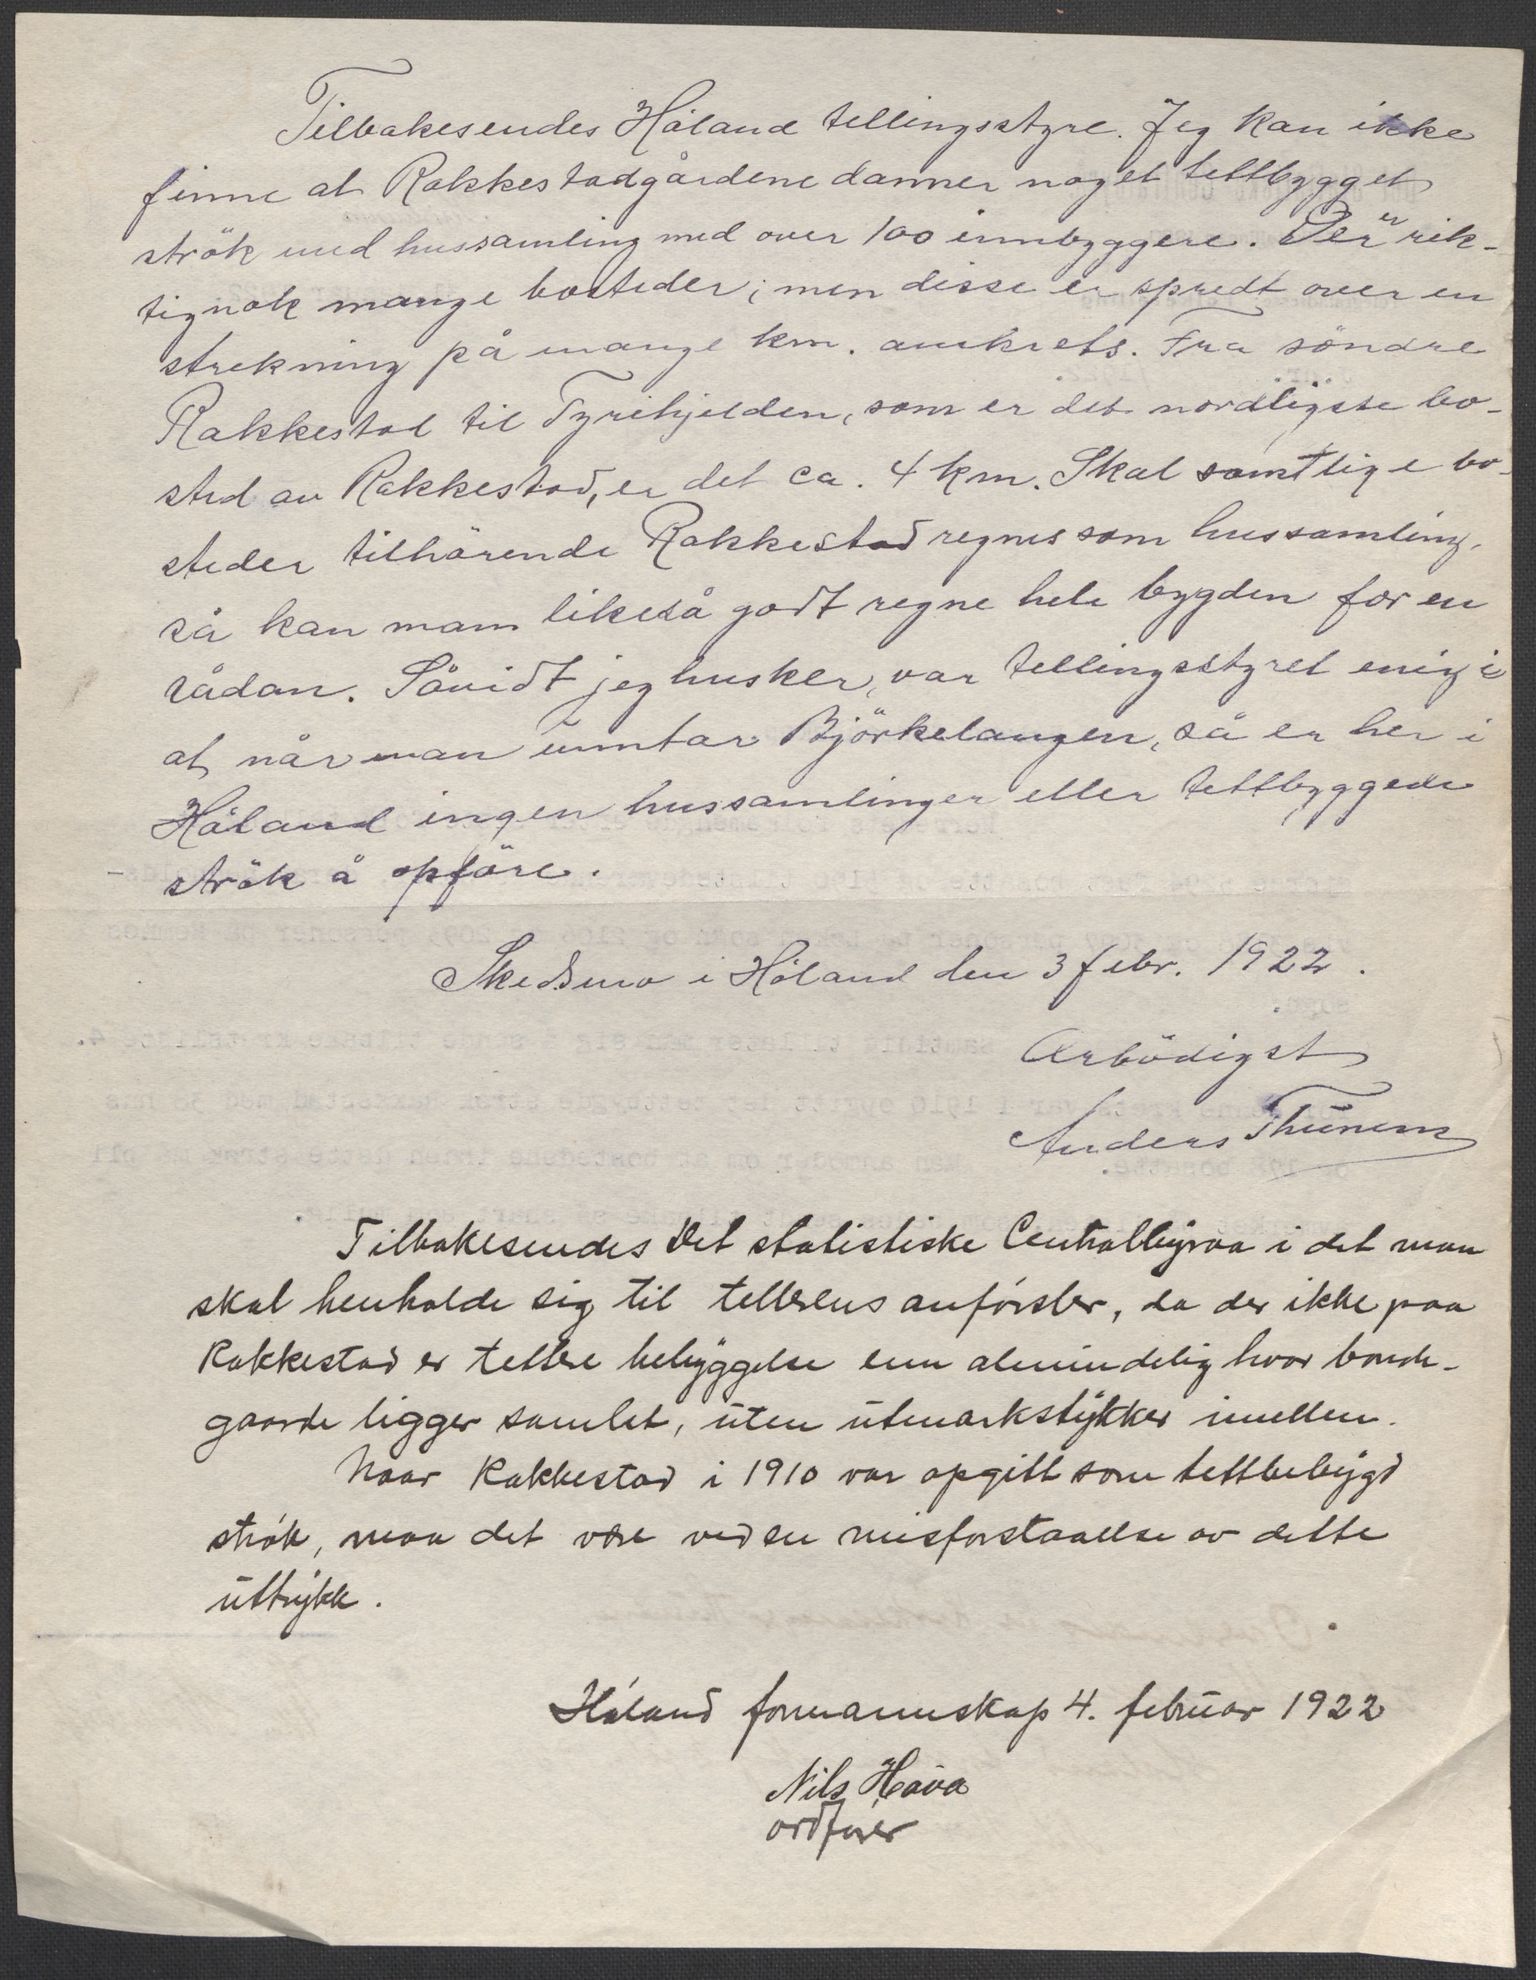 Tilbakesendes Höland tellingsstyre. Jeg kan ikke
finne at Rakkestadgårdene danner noget tettbygget
strök med hussamling med over 100 innbyggere. Der er rik-
tignok mange bosteder; men disse er spredt over en
strekning på mange km. omkrets. Fra söndre
Rakkestad til Tyrihjelden, som er det nordligste bo-
sted av Rakkestad, er det ca. 4 km. Skal samtlige bo-
steder tilhörende Rakkestad regnes som hussamling,
så kan man likeså godt regne hele bygden for en
sådan. Såvidt jeg husker, var tellingsstyret enig i
at når man unntar Björkelangen, så er her i
Höland ingen hussamlinger eller tettbyggede
strök å opföre.
Skedsmo i Höland den 3 febr. 1922.
Ærbödigst
Anders
Tilbakesendes Det statistiske Centralbyraa i det man
skal henholde sig til tellerens anförsler, da der ikke paa
Rakkestad er tettere bebyggelse enn almindelig hvor bonde-
gaarde ligger samlet, uten utmarkstykker imellem.
Naar Rakkestad i 1910 var opgitt som tettbebygd
strók, maa det være ved en misforstaaelse av dette
uttrykk.
Hóland formannskap 4. februar 1922
Nils
ordfører